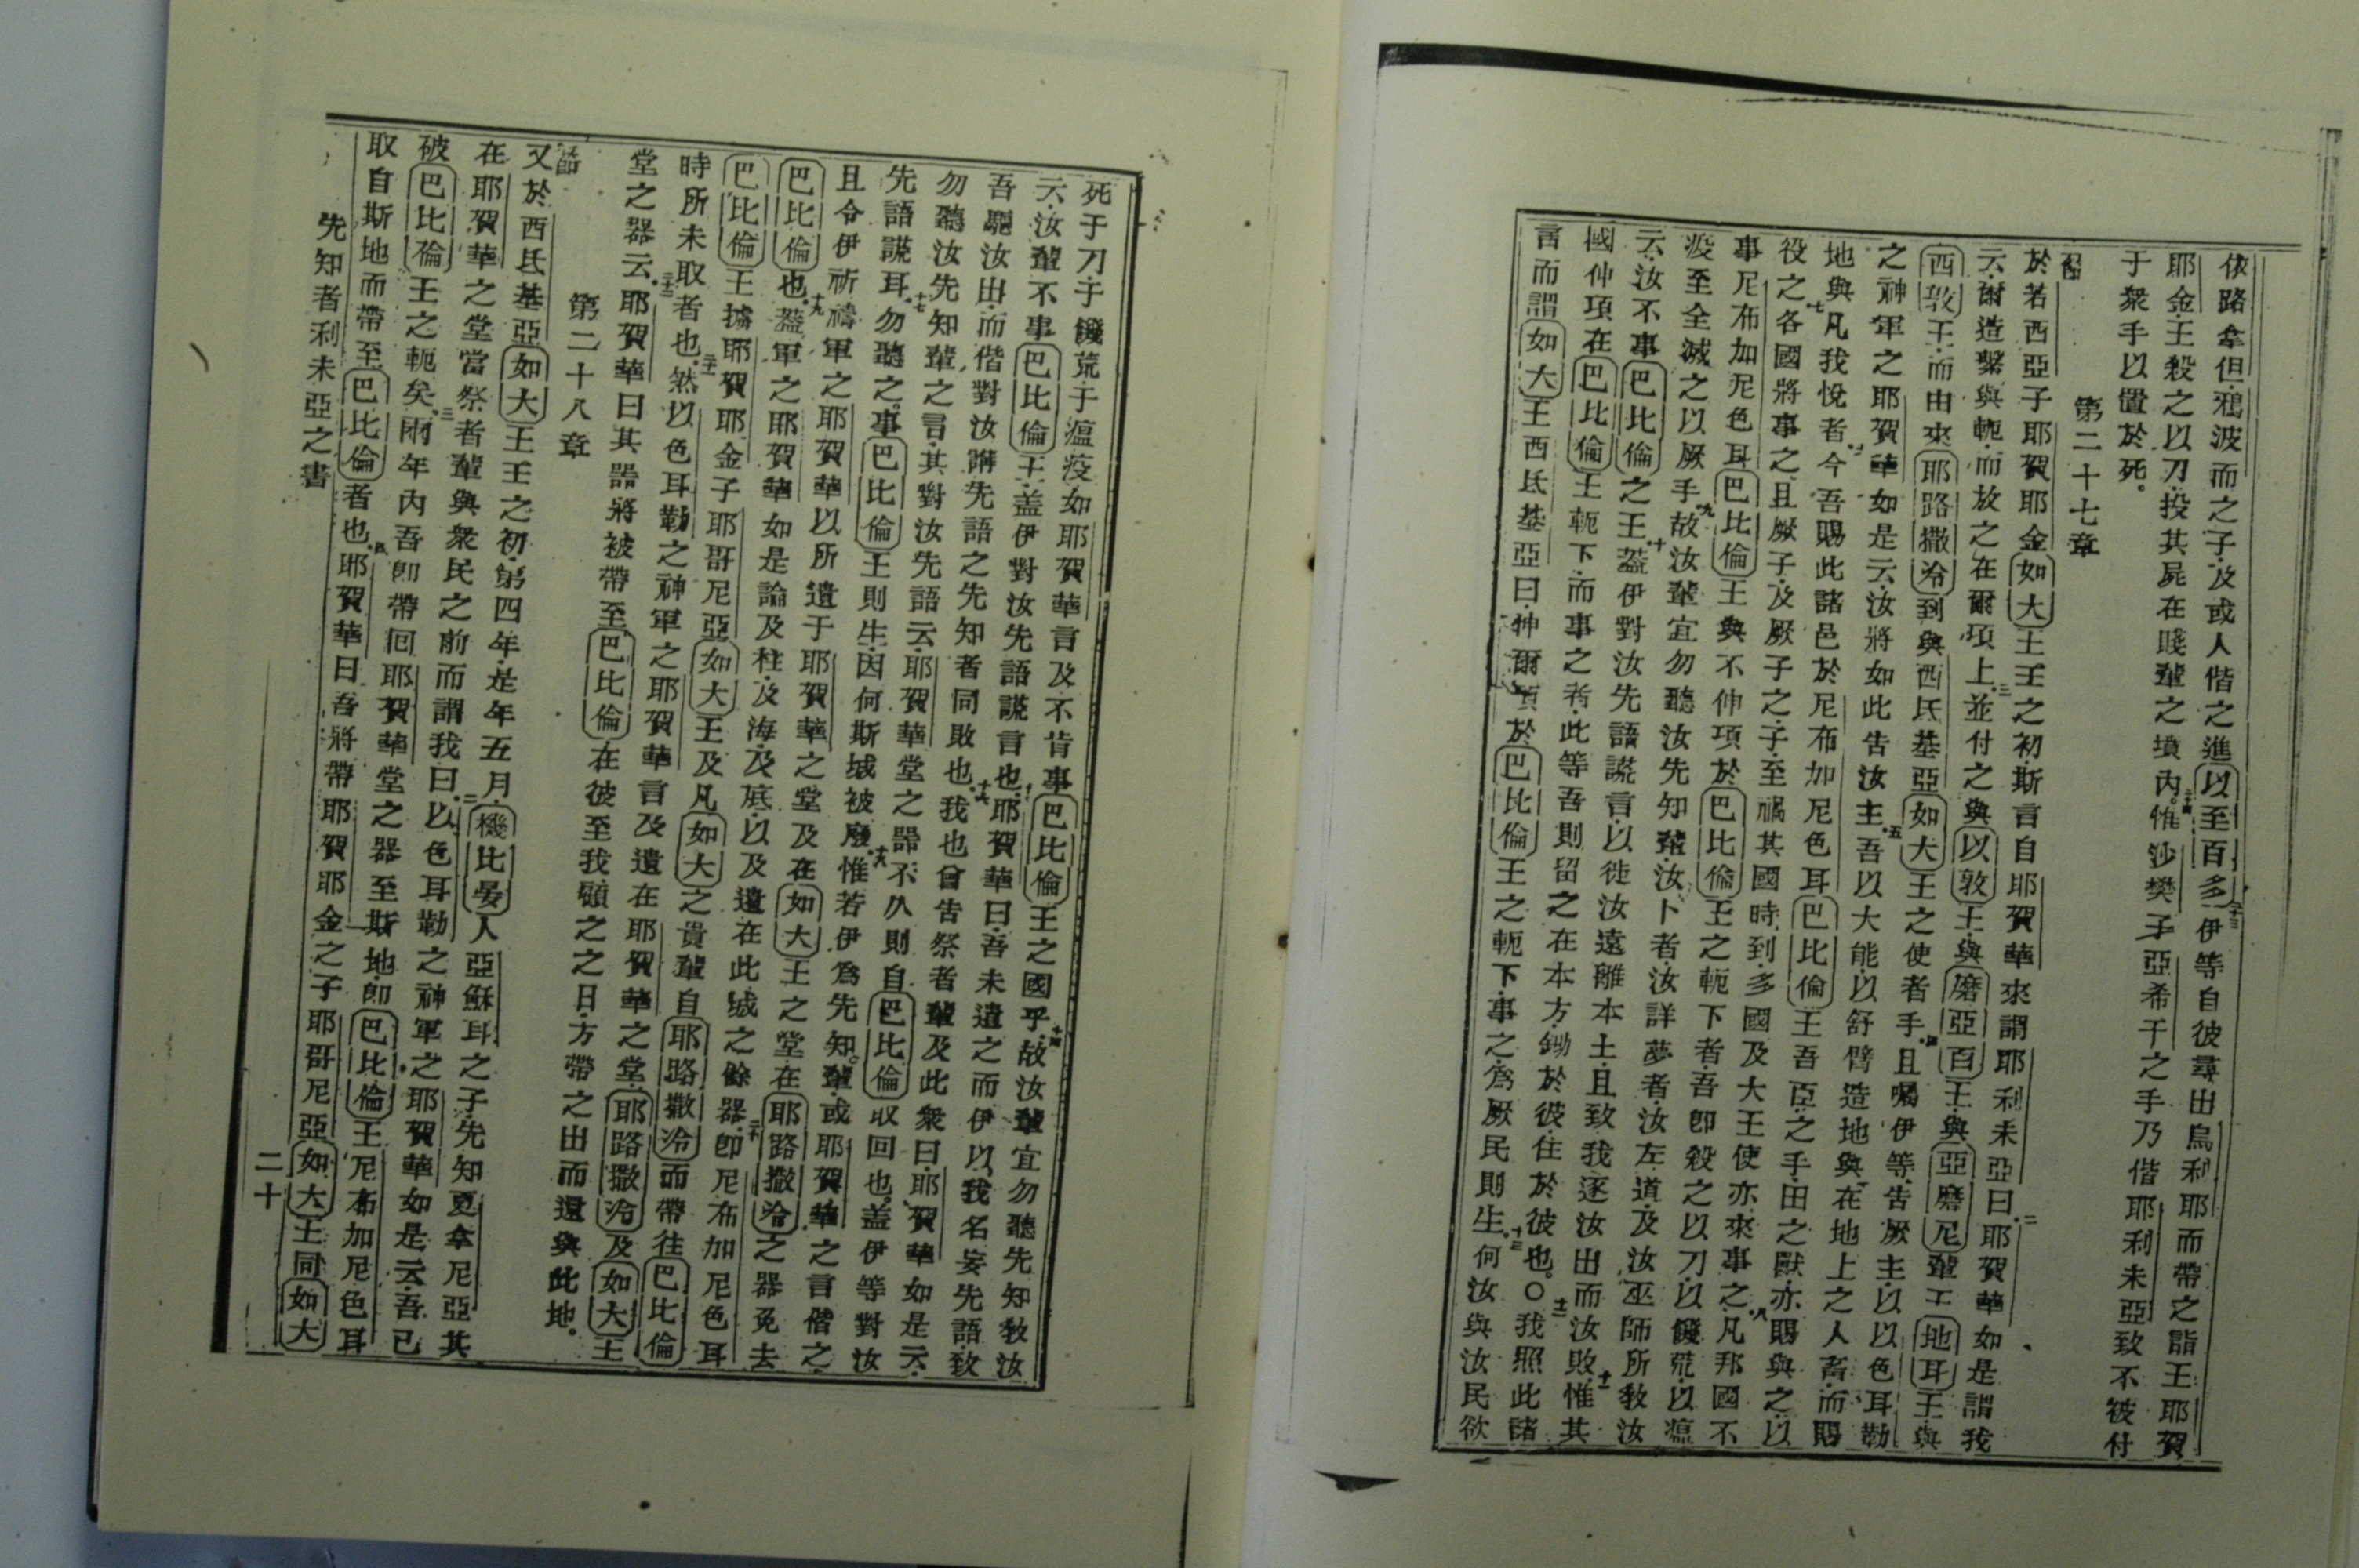 依路拿但鴉波而之子及或人偕之進以至百多二十三伊等自彼尋出烏利耶而帶之詣王耶賀
耶金王殺之以刀投其屍在賤輩之墳內。二十四惟沙樊子亞希干之手乃偕耶利未亞致不被付
于衆手以置於死。
第二十七章
節
於若西亞子耶賀耶金如大王王之初斯言自耶賀華來謂耶利未亞曰二耶賀華如是謂我
云爾造繫與軛而放之在爾項上三並付之與以敦王與磨亞百王與亞磨尼輩王地耳王與
西敦王而由來耶路撒冾到與西氐基亞如大王之使者手四且囑伊等告厥主以以色耳勒
之神軍之耶賀華如是云汝將如此告汝主五吾以大能以舒臂造地與在地上之人畜而賜
地與凡我悅者六今吾賜此諸邑於尼布加尼色耳巴比倫王吾臣之手田之獸亦賜與之以
役之七各國將事之且厥子及厥子之子至禍其國時到多國及大王使亦來事之八凡邦國不
事尼布加尼色耳巴比倫王與不伸項於巴比倫王之軛下者吾卽殺之以刀以饑荒以瘟
疫至全滅之以厥手九故汝輩宜勿聽汝先知輩汝卜者汝詳夢者汝左道及汝巫師所教汝
云汝不事巴比倫之王十蓋伊對汝先語謊言以徙汝遠離本土且致我逐汝出而汝敗十一惟其
國伸項在巴比倫王軛下而事之者此等吾則留之在本方鋤於彼住於彼也。〇十二我照此諸
言而謂如大王西氐基亞曰伸爾項於巴比倫王之軛下事之爲厥民則生十三何汝與汝民欲
死于刀于饑荒于瘟疫如耶賀華言及不肯事巴比倫王之國乎十四故汝輩宜勿聽先知教汝
云汝輩不事巴比倫王盖伊對汝先語謊言也耶賀華曰吾未遣之而伊以我名妄先語致
吾驅汝出而偕對汝輩先語之先知者同敗也十六我也曾告祭者輩及此衆曰耶賀華如是云
勿聽汝先知輩之言其對汝先語云耶賀華堂之器不久則自巴比倫取回也。盖伊等對汝
先語謊耳十七勿聽之事巴比倫王則生因何斯城被廢十八惟若伊爲先知輩或耶賀華之言偕之
且令伊祈禱軍之耶賀華以所遺于耶賀華之堂及在如大王之堂在耶路撒冾之器免去
巴比倫也十九蓋軍之耶賀華如是論及柱及海及底以及遺在此城之餘器二十卽尼布加尼色耳
巴比倫王擄耶賀耶金子耶哥尼亞如大王及凡如大之貴輩自耶路撒冾而帶往巴比倫
時所未取者也二十一然以色耳勒之神軍之耶賀華言及遺在耶賀華之堂耶路撒冾及如大王
堂之器云二十二耶賀華曰其器將被帶至巴比倫在彼至我顧之之日方帶之出而還與此地。
第二十八章
節
又於西氐基亞如大王王之初第四年是年五月機比晏人亞穌耳之子先知夏拿尼亞其
在耶賀華之堂當祭者輩與衆民之前而謂我曰二以色耳勒之神軍之耶賀華如是云吾已
破巴比倫王之軛矣三兩年內吾卽帶囘耶賀華堂之器至斯地卽巴比倫王尼布加尼色耳
取自斯地而帶至巴比倫者也四耶賀華曰吾將帶耶賀耶金之子耶哥尼亞如大王同如大
先知者利未亞之書
二十